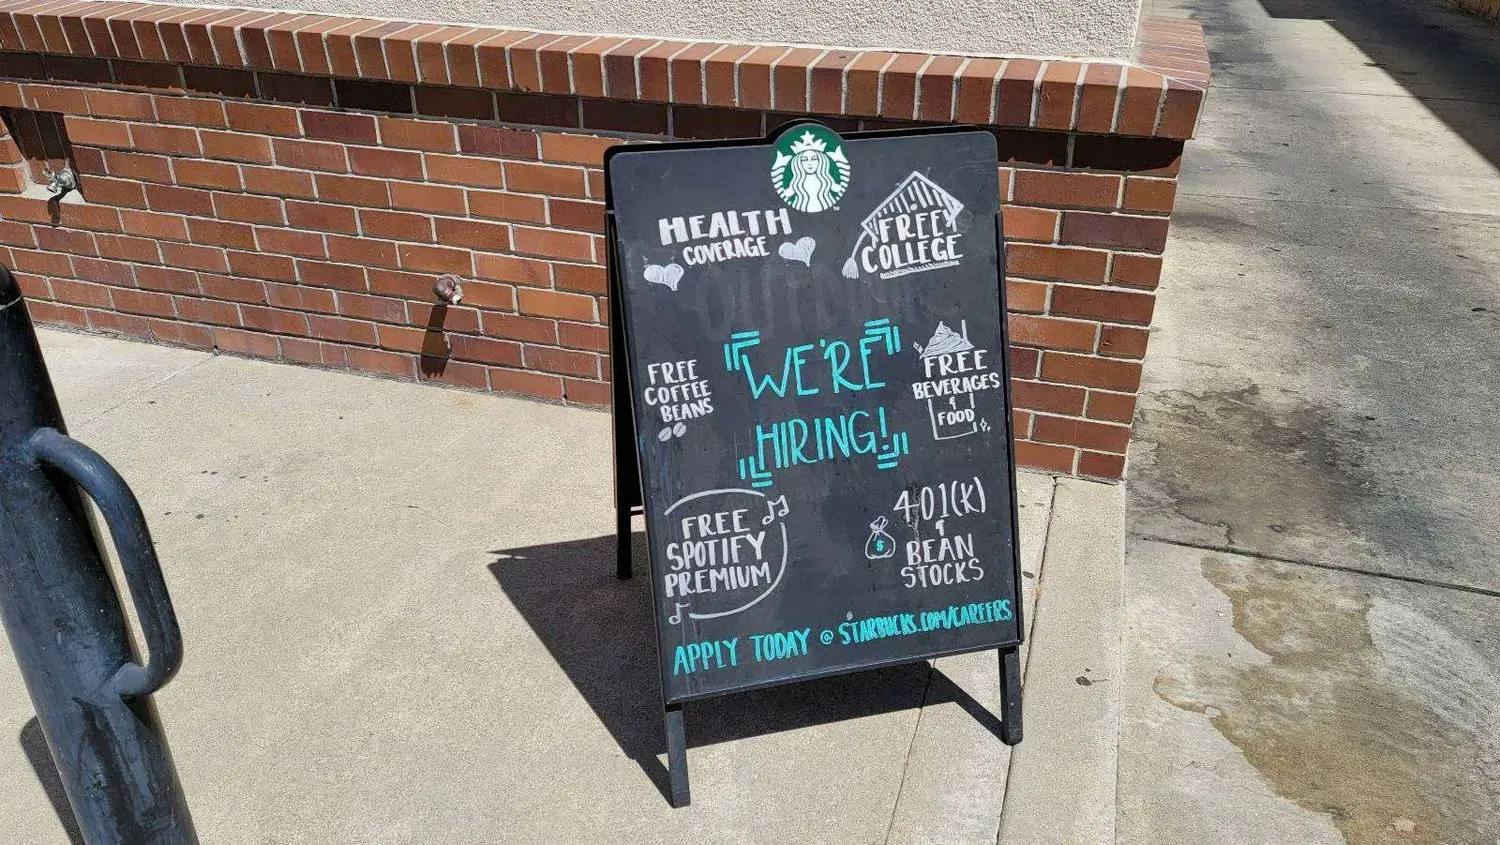 HEALTH
COVERAGE
FREE
COLLEGE
WE'RE
HIRING!
FREE
COFFEE
BEANS
FREE
BEVERAGES
&
FOOD
FREE
SPOTIFY
PREMIUM
401(K)
&
BEAN
STOCKS
$
APPLY TODAY @ STARBUCKS.COM/CAREERS